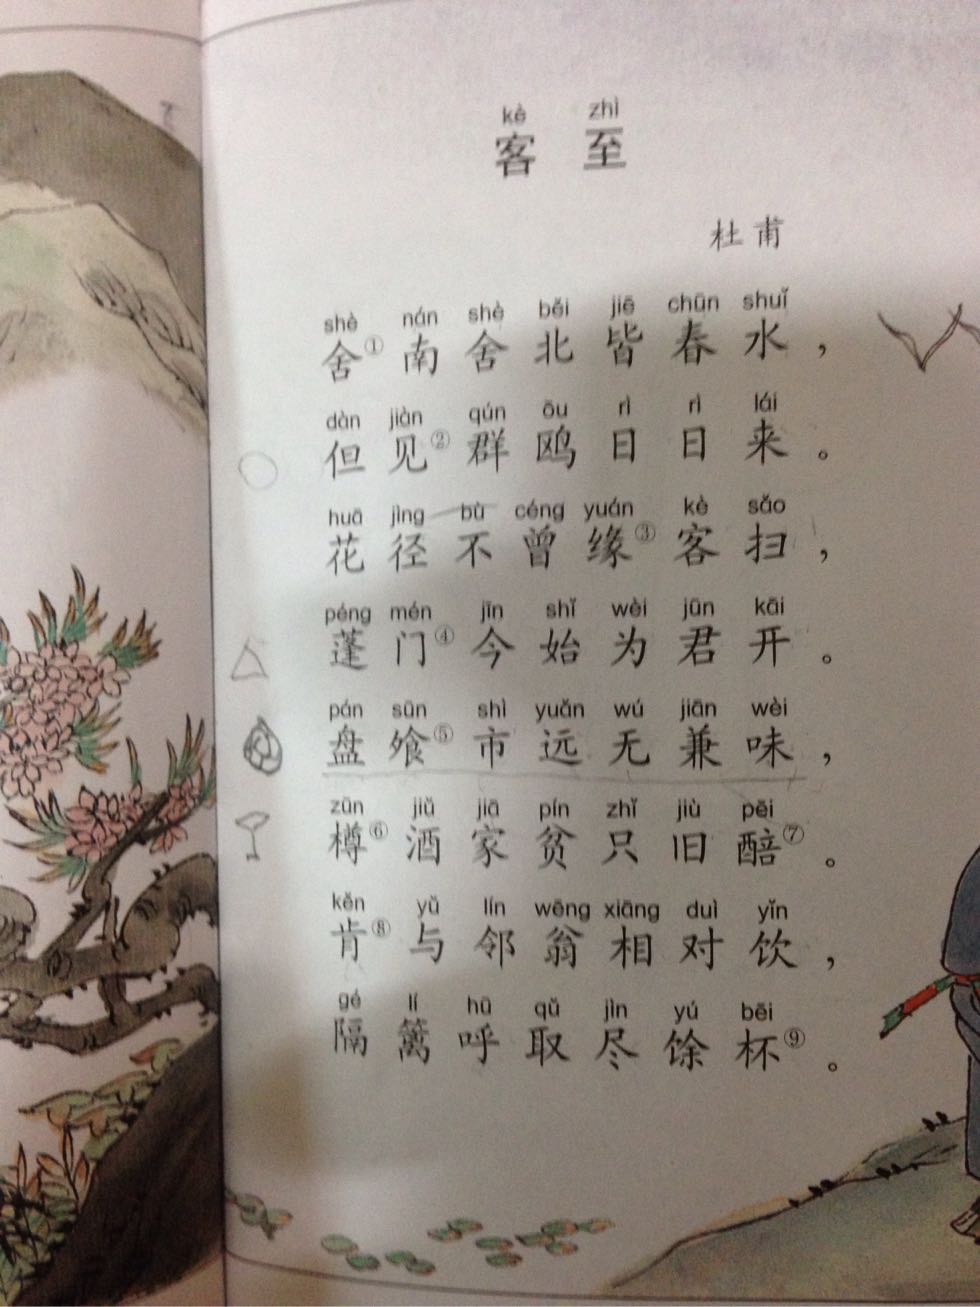 kè zhì
客 至
杜 甫
shè nán shè běi jiē chūn shuǐ
舍① 南 舍 北 皆 春 水，
dàn jiàn qún ōu rì rì lái
但 见② 群 鸥 日 日 来。
huā jìng bù céng yuán kè sǎo
花 径 不 曾 缘③ 客 扫，
péng mén jīn shǐ wèi jūn kāi
蓬 门④ 今 始 为 君 开。
pán sūn shì yuǎn wú jiān wèi
盘 飧⑤ 市 远 无 兼 味，
zūn jiǔ jiā pín zhǐ jiù pēi
樽⑥ 酒 家 贫 只 旧 醅⑦。
kěn yǔ lín wēng xiāng duì yǐn
肯⑧ 与 邻 翁 相 对 饮，
gé lí hū qǔ jìn yú bēi
隔 篱 呼 取 尽 馀 杯⑨。